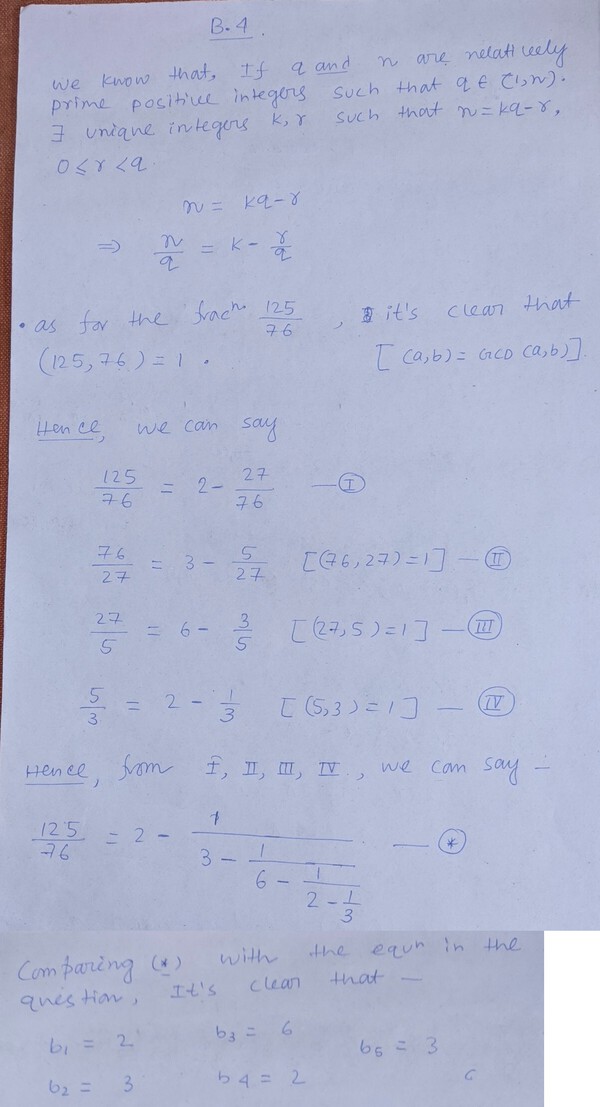 B.4.
we know that, If q and n are relatively
prime positive integers such that q ∈ (1,n).
∃ unique integers k, r such that n = kq - r,
0 ≤ r < q.
n = kq - r
⇒ n/q = k - r/q
• as for the fracn 125/76, it's clear that
(125, 76) = 1. [(a,b) = GCD (a,b)]
Hence, we can say
125/76 = 2 - 27/76 — I
76/27 = 3 - 5/27 [(76,27)=1] — II
27/5 = 6 - 3/5 [(27,5)=1] — III
5/3 = 2 - 1/3 [(5,3)=1] — IV
Hence, from I, II, III, IV, we can say -
125/76 = 2 - 1/(3 - 1/(6 - 1/(2 - 1/3))) — *
Comparing (*) with the equn in the
question, It's clear that —
b1 = 2 b3 = 6 b5 = 3
b2 = 3 b4 = 2